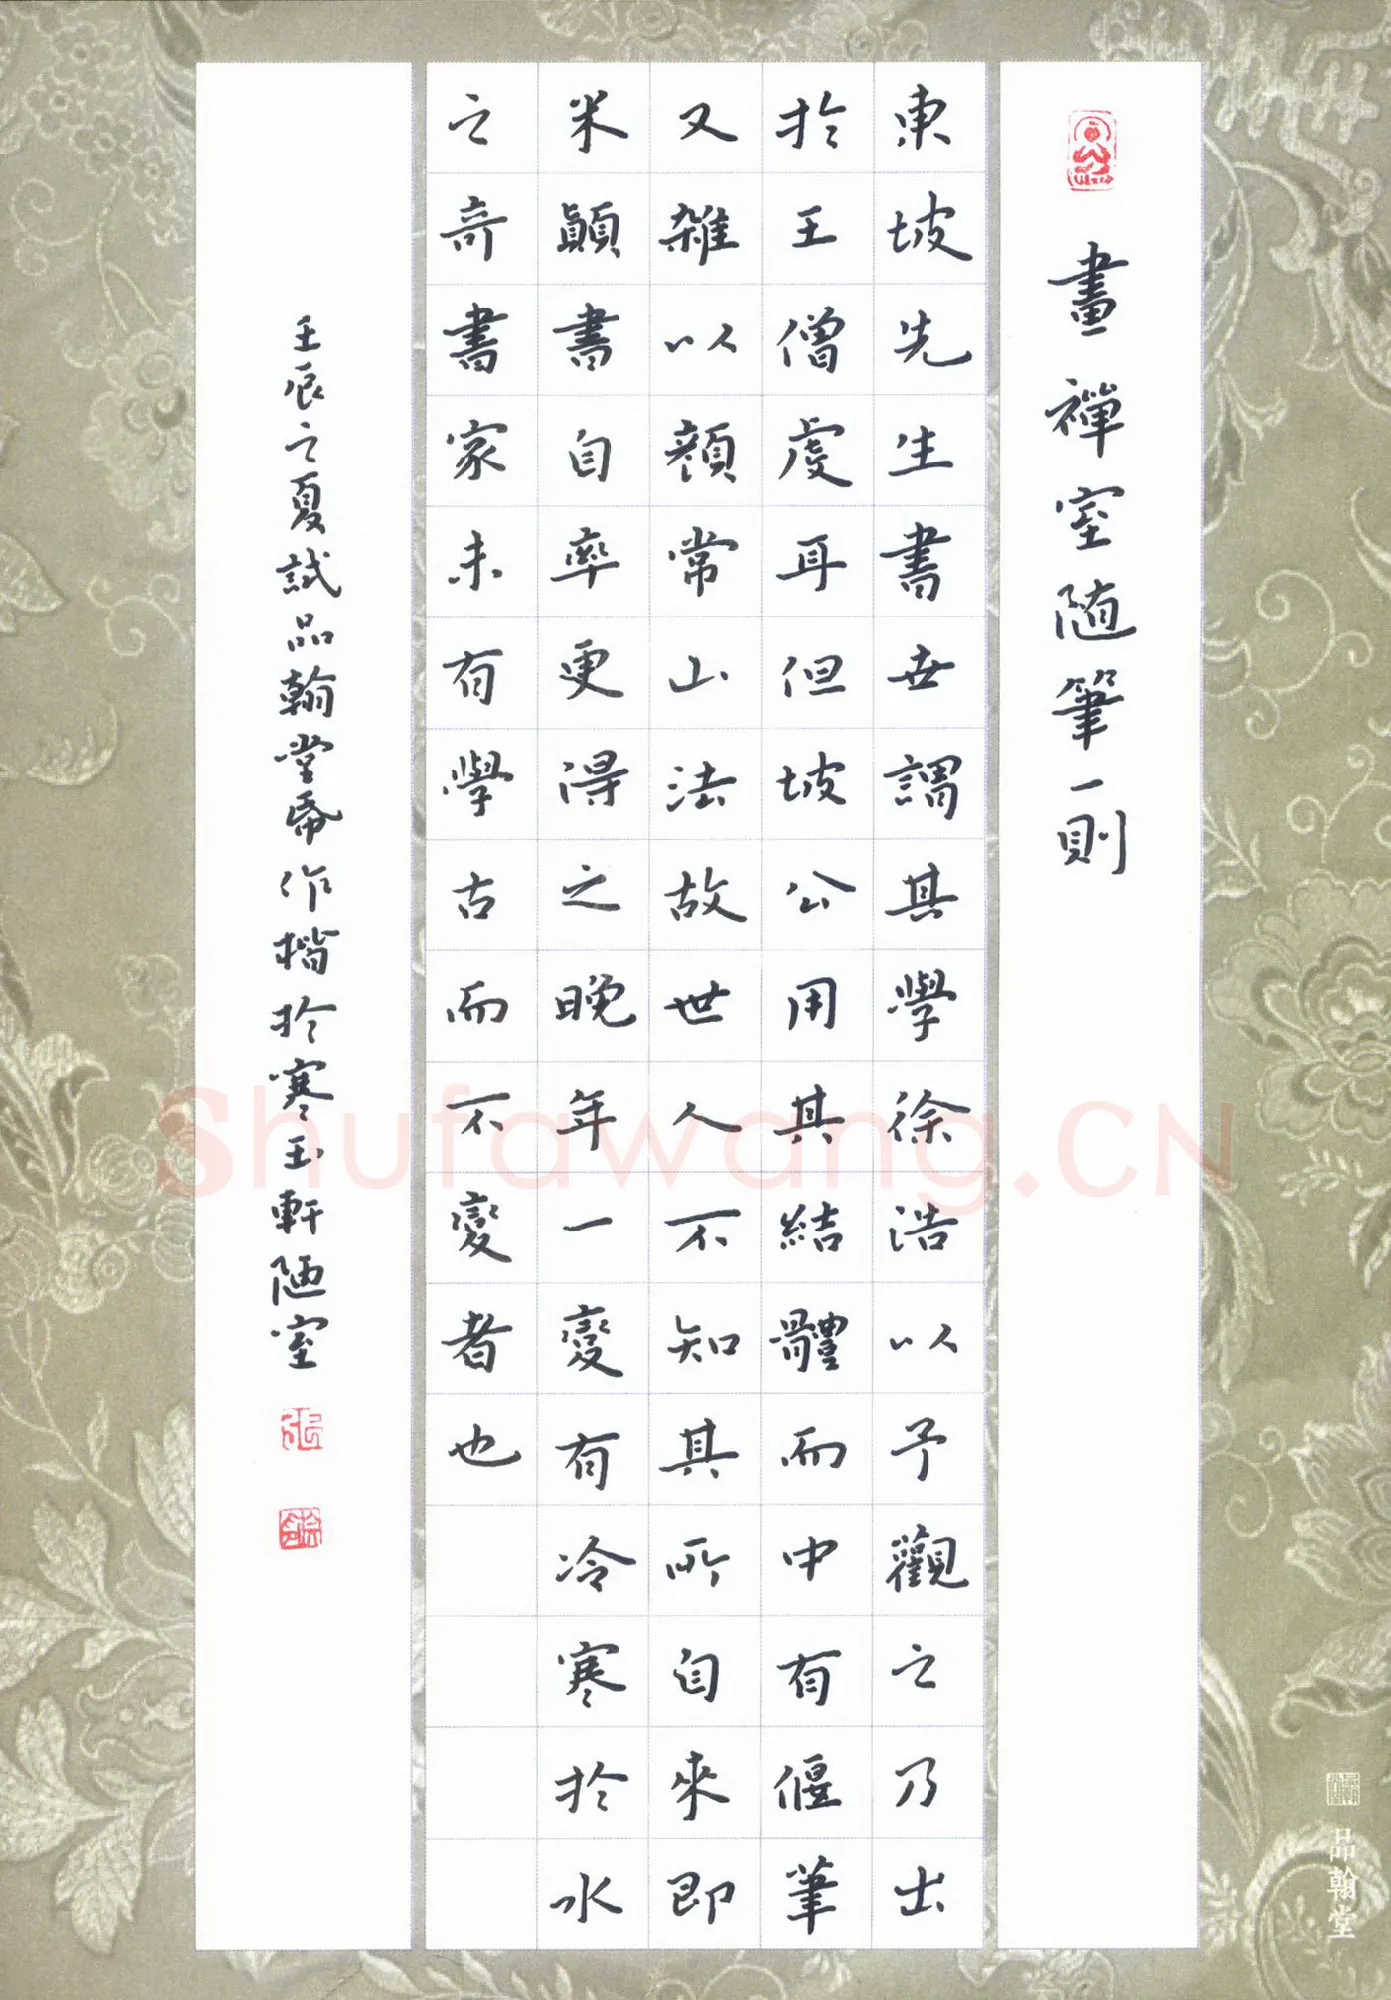 畫禪室随筆一則
東坡先生書世謂其學徐浩以予觀之乃出
於王僧虔耳但坡公用其結體而中有偃筆
又雜以顏常山法故世人不知其所自來即
米顛書自率更得之晚年一變有冷寒於水
之奇書家未有學古而不變者也
壬辰之夏試品翰堂帋作楷於寒玉軒陋室
品翰堂
Shufawang.CN